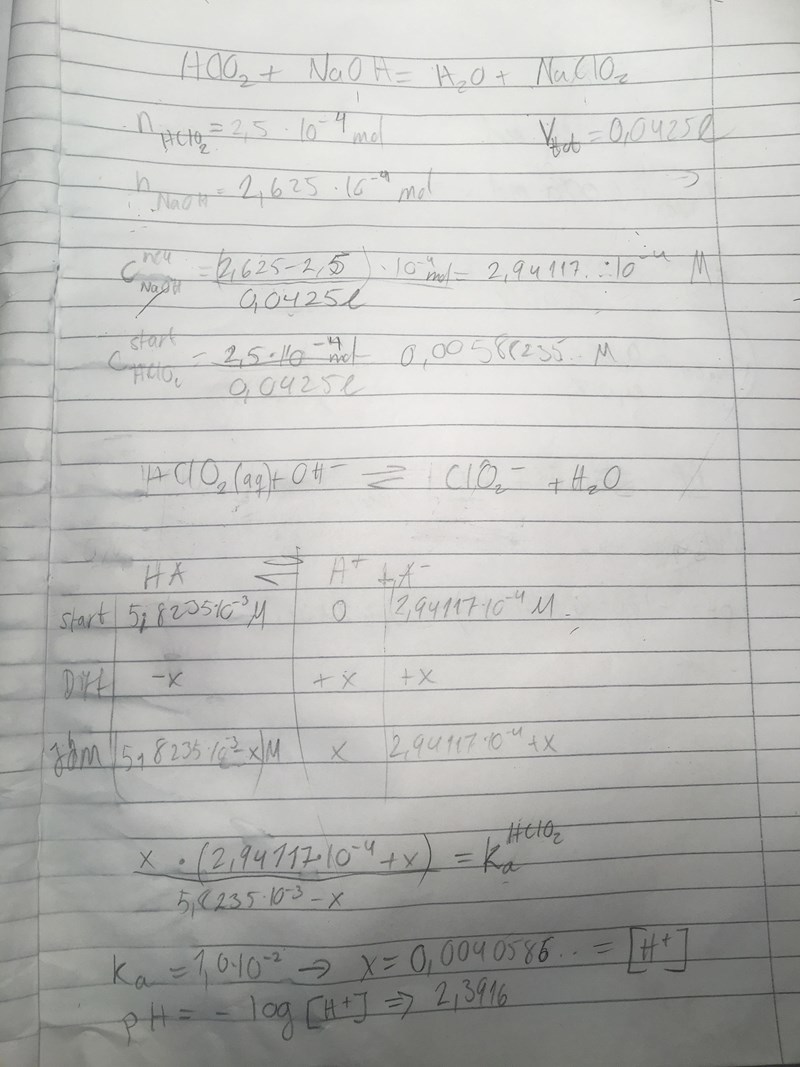 HClO₂ + NaOH = H₂O + NaClO₂
n_HClO₂ = 2,5 · 10⁻⁴ mol V_tot = 0,0425l
n_NaOH = 2,625 · 10⁻⁴ mol →
C_NaOH^neu = (2,625-2,5) · 10⁻⁴ mol / 0,0425l = 2,94117.. · 10⁻⁴ M
C_HClO₂^start = 2,5 · 10⁻⁴ mol / 0,0425l 0,00588235.. M
HClO₂(aq) + OH⁻ ⇌ ClO₂⁻ + H₂O
HA ⇌ H⁺ + A⁻
start 5,8235·10⁻³ M 0 2,94117·10⁻⁴ M.
Diff -x +x +x
jäm 5,8235·10⁻³-x)M x 2,94117·10⁻⁴+x
x · (2,94117·10⁻⁴+x) / 5,8235·10⁻³-x = Ka^HClO₂
Ka = 1,0·10⁻² → x = 0,0040586.. = [H⁺]
pH = - log [H⁺] ⇒ 2,3916